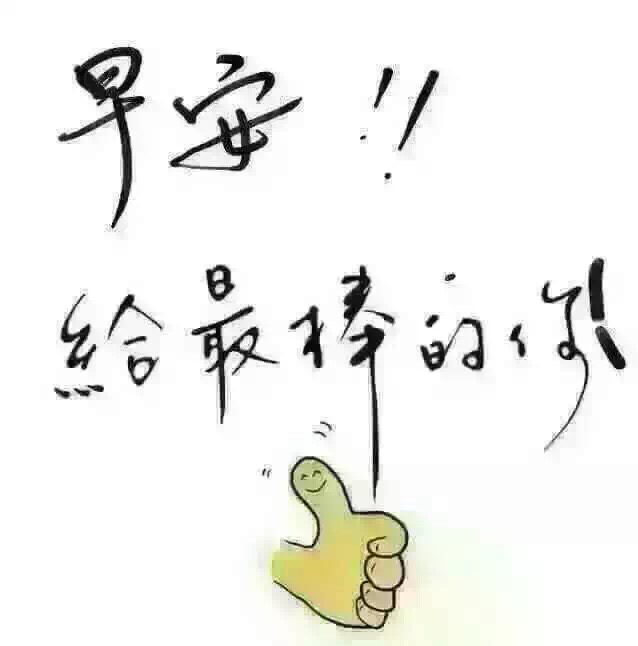 早安!!
給最棒的你!